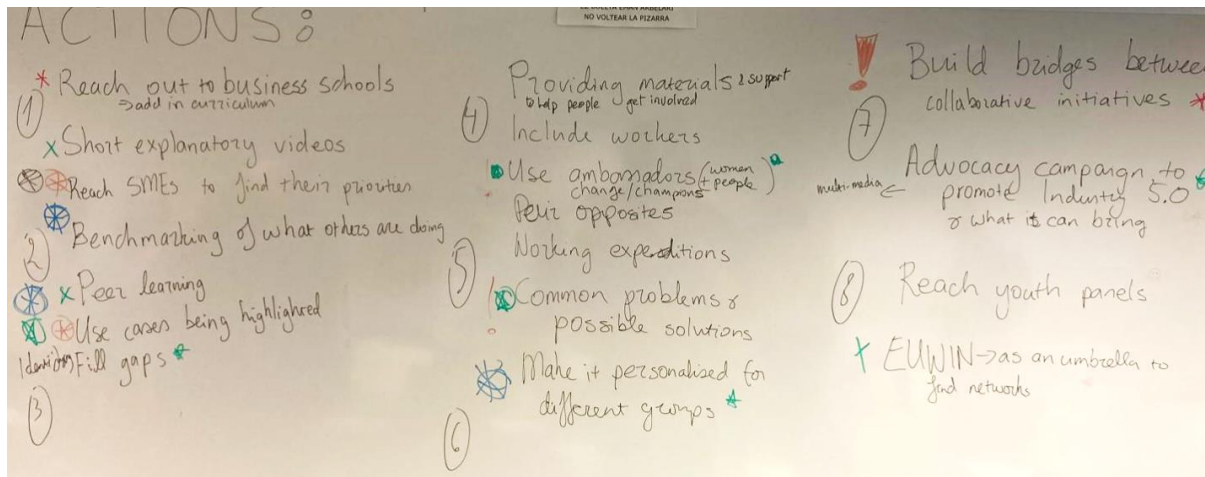 ACTIONS:
NO VOLTEAR LA PIZARRA
Reach out to business schools
⇒ add in curriculum
①
x Short explanatory videos
Reach SMEs to find their priorities
Benchmarking of what others are doing
②
x Peer learning
Use cases being highlighted
Fill gaps
③
Providing materials & support
to help people get involved
④
Include workers
Use (women
change/champions + people)
opposites
Working
⑤
! Common problems &
possible solutions
Make it personalised for
different groups
⑥
! Build bridges between
collaborative initiatives
⑦
Advocacy campaign to
multi-media ← promote Industry 5.0
& what it can bring
⑧
Reach youth panels
EUWIN → as an umbrella to
find networks